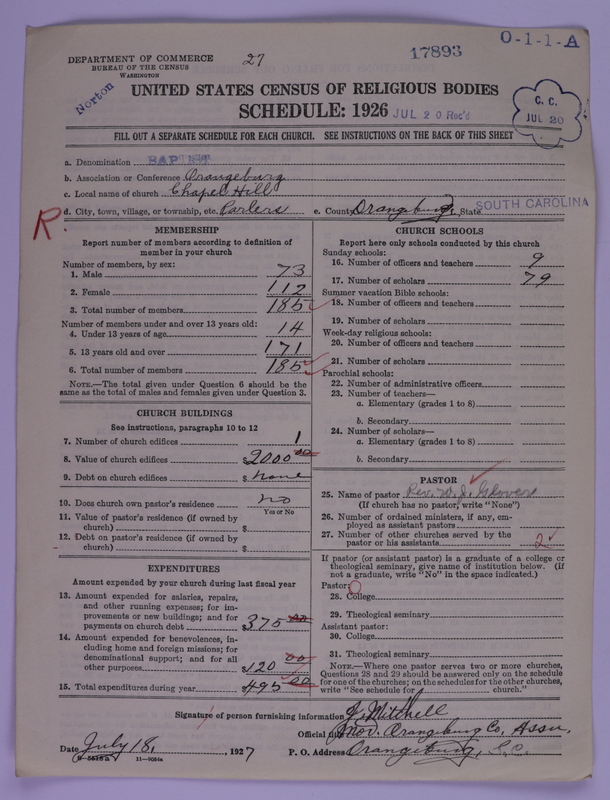 DEPARTMENT OF COMMERCE
BUREAU OF THE CENSUS
WASHINGTON
27
17893
O-1-1-A
Norton
UNITED STATES CENSUS OF RELIGIOUS BODIES
SCHEDULE: 1926
JUL 20 Rec'd
C. C.
JUL 20
FILL OUT A SEPARATE SCHEDULE FOR EACH CHURCH. SEE INSTRUCTIONS ON THE BACK OF THIS SHEET
a. Denomination BAPTIST
b. Association or Conference Orangeburg
c. Local name of church Chapel Hill
R d. City, town, village, or township, etc. Parlers e. County Orangeburg State SOUTH CAROLINA
MEMBERSHIP
Report number of members according to definition of
member in your church
Number of members, by sex:
1. Male 73
2. Female 112
3. Total number of members 185
Number of members under and over 13 years old:
4. Under 13 years of age 14
5. 13 years old and over 171
6. Total number of members 185
NOTE.—The total given under Question 6 should be the
same as the total of males and females given under Question 3.
CHURCH BUILDINGS
See instructions, paragraphs 10 to 12
7. Number of church edifices 1
8. Value of church edifices $2000 00
9. Debt on church edifices $ none
10. Does church own pastor's residence no
Yes or No
11. Value of pastor's residence (if owned by
church) $
12. Debt on pastor's residence (if owned by
church) $
EXPENDITURES
Amount expended by your church during last fiscal year
13. Amount expended for salaries, repairs,
and other running expenses; for im-
provements or new buildings; and for
payments on church debt $375 00
14. Amount expended for benevolences, in-
cluding home and foreign missions; for
denominational support; and for all
other purposes $120 00
15. Total expenditures during year $495 00
CHURCH SCHOOLS
Report here only schools conducted by this church
Sunday schools:
16. Number of officers and teachers 9
17. Number of scholars 79
Summer vacation Bible schools:
18. Number of officers and teachers
19. Number of scholars
Week-day religious schools:
20. Number of officers and teachers
21. Number of scholars
Parochial schools:
22. Number of administrative officers
23. Number of teachers—
a. Elementary (grades 1 to 8)
b. Secondary
24. Number of scholars—
a. Elementary (grades 1 to 8)
b. Secondary
PASTOR
25. Name of pastor Rev. W. J. Glover
(If church has no pastor, write "None")
26. Number of ordained ministers, if any, em-
ployed as assistant pastors
27. Number of other churches served by the
pastor or his assistants 2
If pastor (or assistant pastor) is a graduate of a college or
theological seminary, give name of institution below. (If
not a graduate, write "No" in the space indicated.)
Pastor:
28. College
29. Theological seminary
Assistant pastor:
30. College
31. Theological seminary
NOTE.—Where one pastor serves two or more churches,
Questions 28 and 29 should be answered only on the schedule
for one of the churches; on the schedules for the other churches
write "See schedule for church."
Signature of person furnishing information J. Mitchell
Official title Mod. Orangeburg Co, Assn.
Date July 18, 1927 P. O. Address Orangeburg, S.C.
11—9054a